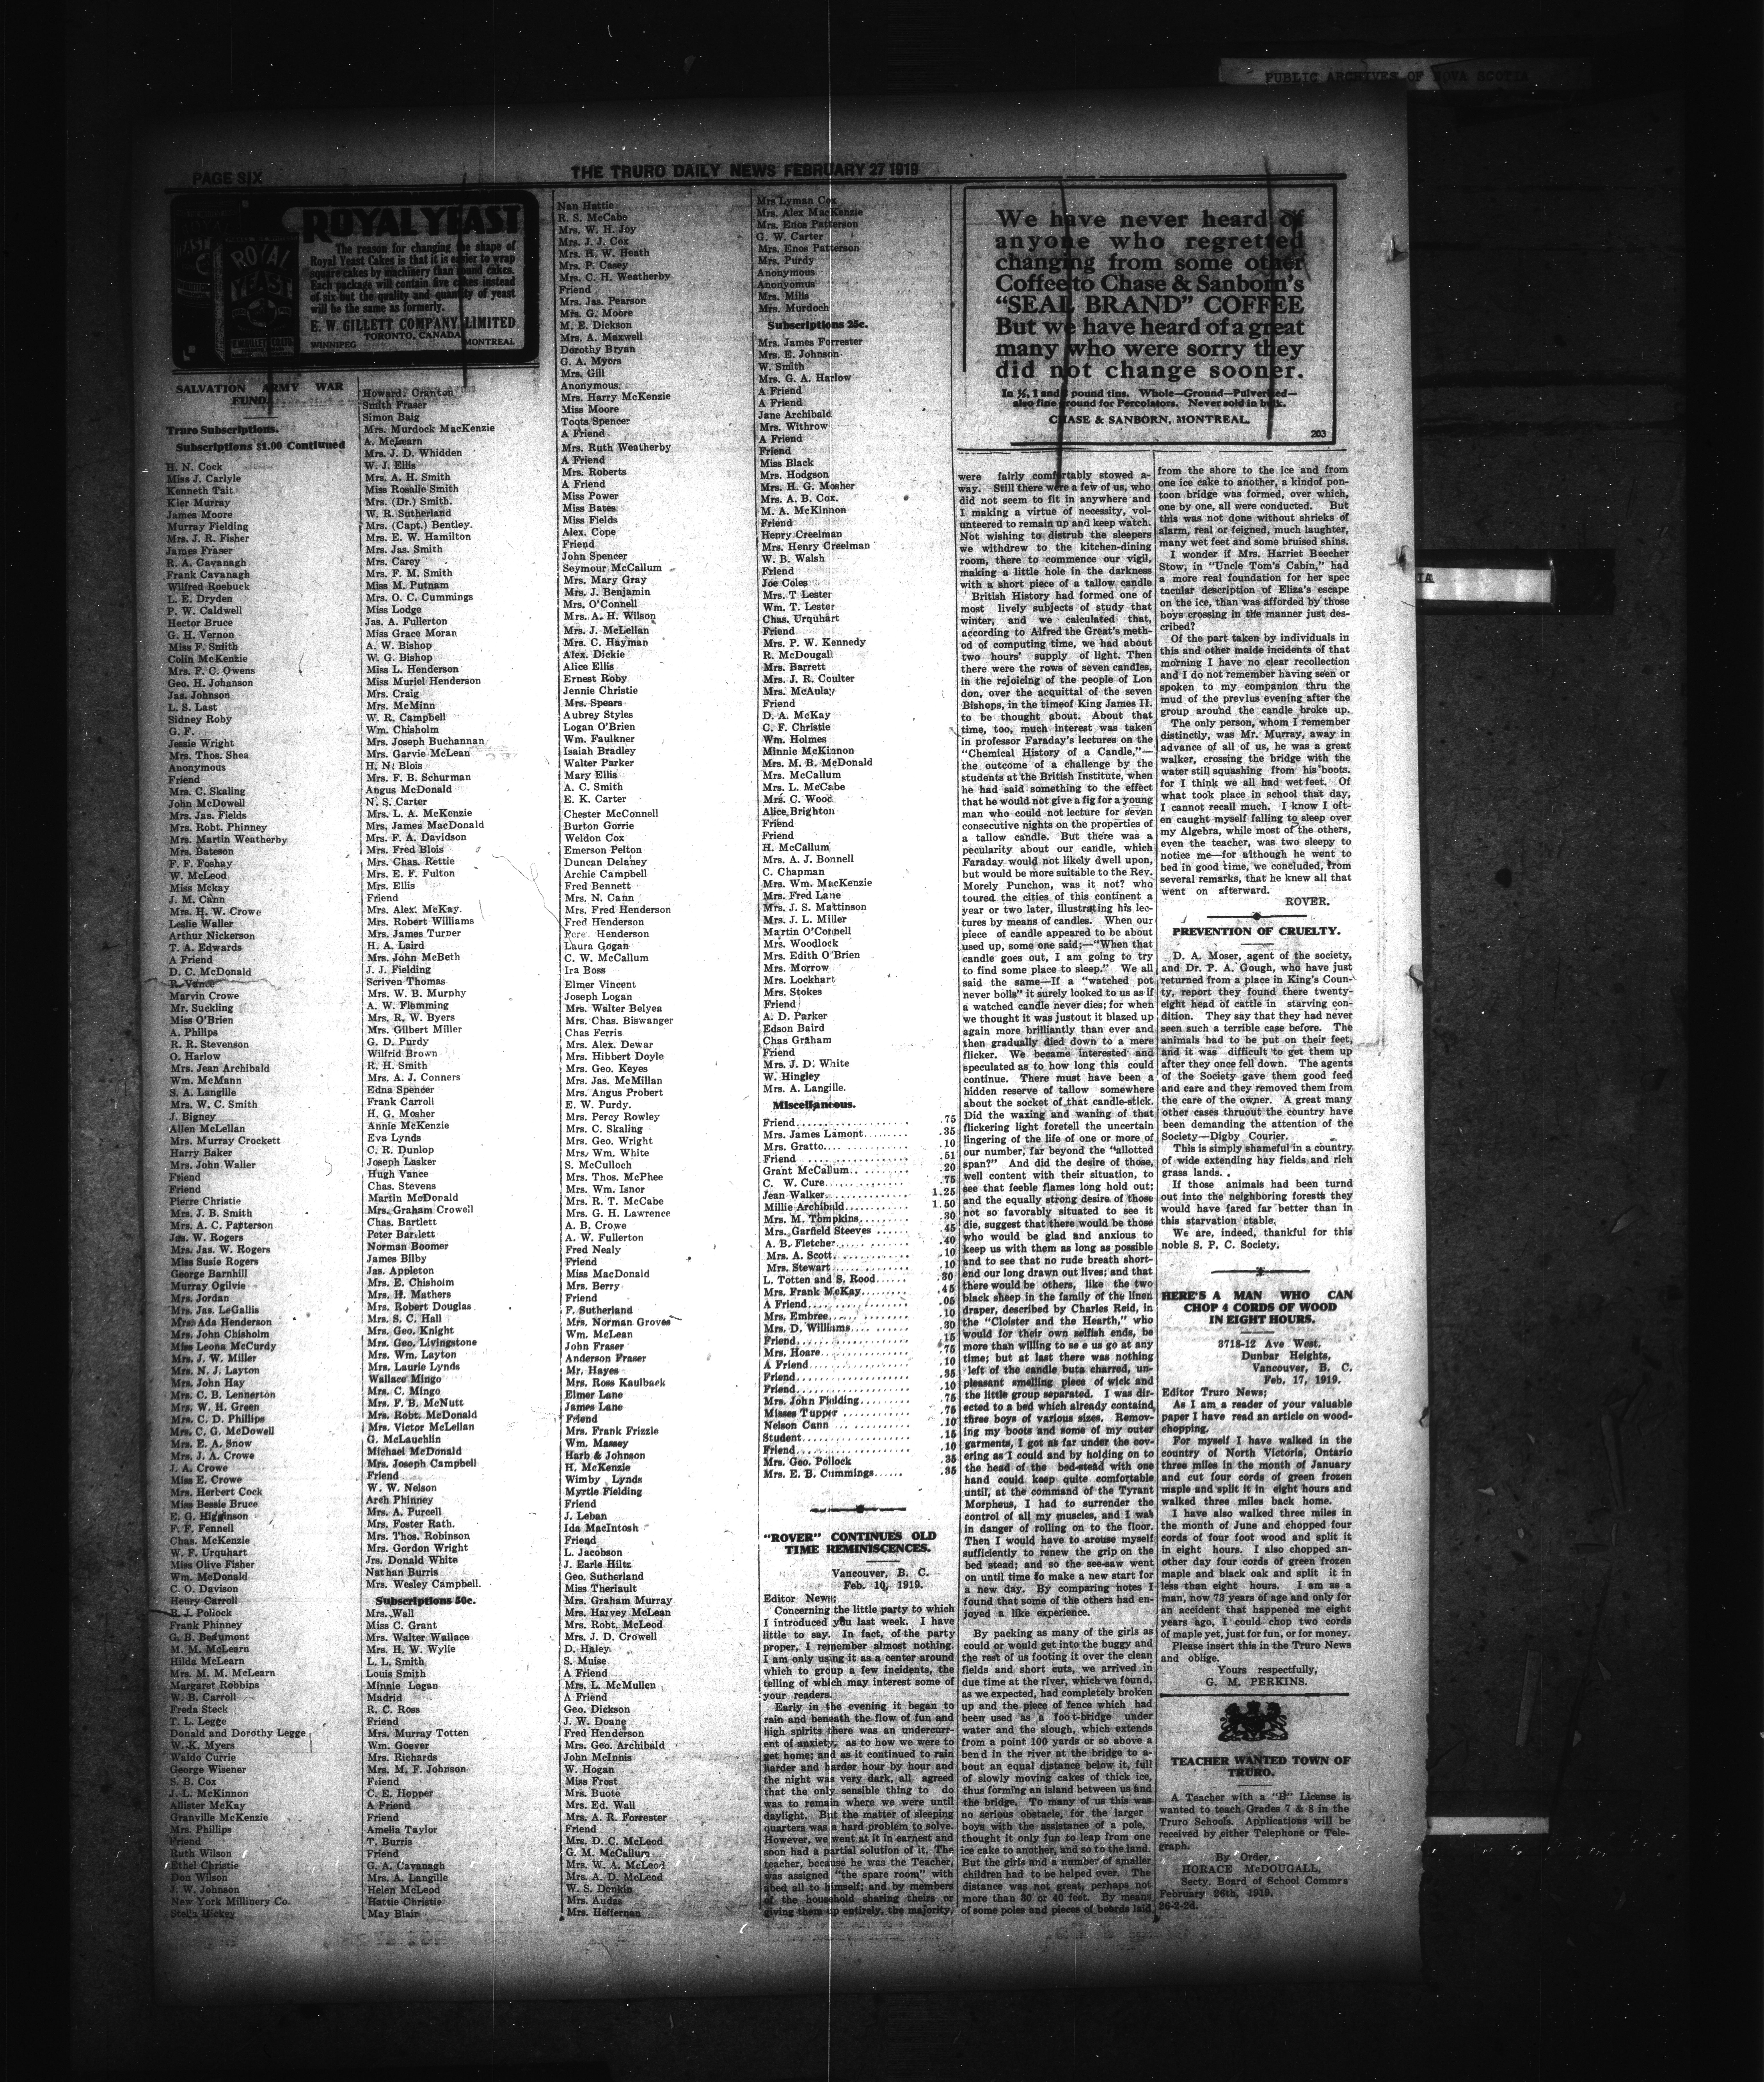 PUBLIC ARCHIVES OF NOVA SCOTIA
PAGE SIX
THE TRURO DAILY NEWS FEBRUARY 27 1919
ROYAL YEAST
The reason for changing the shape of
Royal Yeast Cakes is that it is easier to wrap
square cakes by machinery than round cakes.
Each package will contain five cakes instead
of six but the quality and quantity of yeast
will be the same as formerly.
E. W. GILLETT COMPANY LIMITED
TORONTO, CANADA
WINNIPEG
MONTREAL
SALVATION ARMY WAR
FUND.
Truro Subscriptions.
Subscriptions $1.00 Contiuned
H. N. Cock
Miss J. Carlyle
Kenneth Tait
Kier Murray
James Moore
Murray Fielding
Mrs. J. R. Fisher
James Fraser
R. A. Cavanagh
Frank Cavanagh
Wilfred Roebuck
L. E. Dryden
P. W. Caldwell
Hector Bruce
G. H. Vernon
Miss F. Smith
Colin McKenzie
Mrs. F. C. Owens
Geo. H. Johanson
Jas. Johnson
L. S. Last
Sidney Roby
G. F.
Jessie Wright
Mrs. Thos. Shea
Anonymous
Friend
Mrs. C. Skaling
John McDowell
Mrs. Jas. Fields
Mrs. Robt. Phinney
Mrs. Martin Weatherby
Mrs. Bateson
F. F. Foshay
W. McLeod
Miss Mckay
J. M. Cann
Mrs. H. W. Crowe
Leslie Waller
Arthur Nickerson
T. A. Edwards
A Friend
D. C. McDonald
R. Vance
Marvin Crowe
Mr. Suckling
Miss O'Brien
A. Philips
R. R. Stevenson
O. Harlow
Mrs. Jean Archibald
Wm. McMann
S. A. Langille
Mrs. W. C. Smith
J. Bigney
Allen McLellan
Mrs. Murray Crockett
Harry Baker
Mrs. John Waller
Friend
Friend
Pierre Christie
Mrs. J. B. Smith
Mrs. A. C. Patterson
Jas. W. Rogers
Mrs. Jas. W. Rogers
Miss Susie Rogers
George Barnhill
Murray Ogilvie
Mrs. Jordan
Mrs. Jas. LeGallis
Mrs. Ada Henderson
Mrs. John Chisholm
Miss Leona McCurdy
Mrs. J. W. Miller
Mrs. N. J. Layton
Mrs. John Hay
Mrs. C. B. Lennerton
Mrs. W. H. Green
Mrs. C. D. Phillips
Mrs. C. G. McDowell
Mrs. E. A. Snow
Mrs. J. A. Crowe
J. A. Crowe
Miss E. Crowe
Mrs. Herbert Cock
Miss Bessie Bruce
E. G. Higginson
F. F. Fennell
Chas. McKenzie
W. F. Urquhart
Miss Olive Fisher
Wm. McDonald
C. O. Davison
Henry Carroll
R. J. Pollock
Frank Phinney
G. B. Beaumont
M. M. McLearn
Hilda McLearn
Mrs. M. M. McLearn
Margaret Robbins
W. B. Carroll
Freda Steck
T. L. Legge
Donald and Dorothy Legge
W. K. Myers
Waldo Currie
George Wisener
S. B. Cox
J. L. McKinnon
Allister McKay
Granville McKenzie
Mrs. Phillips
Friend
Ruth Wilson
Ethel Christie
Den Wilson
J. W. Johnson
New York Millinery Co.
Stella Hickey
Howard Cranton
Smith Fraser
Simon Baig
Mrs. Murdock MacKenzie
A. McLearn
Mrs. J. D. Whidden
W. J. Ellis
Mrs. A. H. Smith
Miss Rosalie Smith
Mrs. (Dr.) Smith.
W. R. Sutherland
Mrs. (Capt.) Bentley.
Mrs. E. W. Hamilton
Mrs. Jas. Smith
Mrs. Carey
Mrs. F. M. Smith
Miss M. Putnam
Mrs. O. C. Cummings
Miss Lodge
Jas. A. Fullerton
Miss Grace Moran
A. W. Bishop
W. G. Bishop
Miss L. Henderson
Miss Muriel Henderson
Mrs. Craig
Mrs. McMinn
W. R. Campbell
Wm. Chisholm
Mrs. Joseph Buchannan
Mrs. Garvie McLean
H. N. Blois
Mrs. F. B. Schurman
Angus McDonald
N. S. Carter
Mrs. L. A. McKenzie
Mrs. James MacDonald
Mrs. F. A. Davidson
Mrs. Fred Blois
Mrs. Chas. Rettie
Mrs. E. F. Fulton
Mrs. Ellis
Friend
Mrs. Alex. McKay.
Mrs. Robert Williams
Mrs. James Turner
H. A. Laird
Mrs. John McBeth
J. J. Fielding
Scriven Thomas
Mrs. W. B. Murphy
A. W. Flemming
Mrs. R. W. Byers
Mrs. Gilbert Miller
G. D. Purdy
Wilfrid Brown
R. H. Smith
Mrs. A. J. Conners
Edna Spencer
Frank Carroll
H. G. Mosher
Annie McKenzie
Eva Lynds
C. R. Dunlop
Joseph Lasker
Hugh Vance
Chas. Stevens
Martin McDonald
Mrs. Graham Crowell
Chas. Bartlett
Peter Bartlett
Norman Boomer
James Bilby
Jas. Appleton
Mrs. E. Chisholm
Mrs. H. Mathers
Mrs. Robert Douglas
Mrs. S. C. Hall
Mrs. Geo. Knight
Mrs. Geo. Livingstone
Mrs. Wm. Layton
Mrs. Laurie Lynds
Wallace Mingo
Mrs. C. Mingo
Mrs. F. B. McNutt
Mrs. Robt. McDonald
Mrs. Victor McLellan
G. McLauchlin
Michael McDonald
Mrs. Joseph Campbell
Friend
W. W. Nelson
Arch Phinney
Mrs. A. Purcell
Mrs. Foster Rath.
Mrs. Thos. Robinson
Mrs. Gordon Wright
Jrs. Donald White
Nathan Burris
Mrs. Wesley Campbell.
Subscriptions 50c.
Mrs. Wall
Miss C. Grant
Mrs. Walter Wallace
Mrs. H. W. Wylie
L. L. Smith
Louis Smith
Minnie Logan
Madrid
R. C. Ross
Friend
Mrs. Murray Totten
Wm. Goever
Mrs. Richards
Mrs. M. F. Johnson
Friend
C. E. Hopper
A Friend
Friend
Amelia Taylor
T. Burris
Friend
G. A. Cavanagh
Mrs. A. Langille
Helen McLeod
Hattie Christie
May Blair
Nan Hattie
R. S. McCabe
Mrs. W. H. Joy
Mrs. J. J. Cox
Mrs. H. W. Heath
Mrs. P. Casey
Mrs. C. H. Weatherby
Friend
Mrs. Jas. Pearson
Mrs. G. Moore
M. E. Dickson
Mrs. A. Maxwell
Dorothy Bryan
G. A. Myers
Mrs. Gill
Anonymous.
Mrs. Harry McKenzie
Miss Moore
Toots Spencer
A Friend
Mrs. Ruth Weatherby
A Friend
Mrs. Roberts
A Friend
Miss Power
Miss Bates
Miss Fields
Alex. Cope
Friend
John Spencer
Seymour McCallum
Mrs. Mary Gray
Mrs. J. Benjamin
Mrs. O'Connell
Mrs. A. H. Wilson
Mrs. J. McLellan
Mrs. C. Hayman
Alex. Dickie
Alice Ellis
Ernest Roby
Jennie Christie
Mrs. Spears
Aubrey Styles
Logan O'Brien
Wm. Faulkner
Isaiah Bradley
Walter Parker
Mary Ellis
A. C. Smith
E. K. Carter
Chester McConnell
Burton Gorrie
Weldon Cox
Emerson Pelton
Duncan Delaney
Archie Campbell
Fred Bennett
Mrs. N. Cann
Mrs. Fred Henderson
Fred Henderson
Henderson
Laura Gogan
C. W. McCallum
Ira Boss
Elmer Vincent
Joseph Logan
Mrs. Walter Belyea
Mrs. Chas. Biswanger
Chas Ferris
Mrs. Alex. Dewar
Mrs. Hibbert Doyle
Mrs. Geo. Keyes
Mrs. Jas. McMillan
Mrs. Angus Probert
E. W. Purdy.
Mrs. Percy Rowley
Mrs. C. Skaling
Mrs. Geo. Wright
Mrs. Wm. White
S. McCulloch
Mrs. Thos. McPhee
Mrs. Wm. Isnor
Mrs. R. T. McCabe
Mrs. G. H. Lawrence
A. B. Crowe
A. W. Fullerton
Fred Nealy
Friend
Miss MacDonald
Mrs. Berry
Friend
F. Sutherland
Mrs. Norman Groves
Wm. McLean
John Fraser
Anderson Fraser
Mr. Hayes
Mrs. Ross Kaulback
Elmer Lane
James Lane
Friend
Mrs. Frank Frizzle
Wm. Massey
Harb & Johnson
H. McKenzie
Wimby Lynds
Myrtle Fielding
Friend
J. Leban
Ida MacIntosh
Friend
L. Jacobson
J. Earle Hiltz
Geo. Sutherland
Miss Theriault
Mrs. Graham Murray
Mrs. Harvey McLean
Mrs. Robt. McLeod
Mrs. J. D. Crowell
D. Haley
S. Muise
A Friend
Mrs. L. McMullen
A Friend
Geo. Dickson
J. W. Doane
Fred Henderson
Mrs. Geo. Archibald
John McInnis
W. Hogan
Miss Frost
Mrs. Buote
Mrs. Ed. Wall
Mrs. A. R. Forrester
Friend
Mrs. D. C. McLeod
G. M. McCallum
Mrs. W. A. McLeod
Mrs. A. D. McLeod
W. S. Denkin
Mrs. Audas
Mrs. Heffernan
Mrs Lyman Cox
Mrs. Alex MacKenzie
Mrs. Enos Patterson
G. W. Carter
Mrs. Enos Patterson
Mrs. Purdy
Anonymous
Anonyomus
Mrs. Mills
Mrs. Murdoch
Subscriptions 25c.
Mrs. James Forrester
Mrs. E. Johnson
W. Smith
Mrs. G. A. Harlow
A Friend
A Friend
Jane Archibald
Mrs. Withrow
A Friend
Friend
Miss Black
Mrs. Hodgson
Mrs. H. G. Mosher
Mrs. A. B. Cox.
M. A. McKinnon
Friend
Henry Creelman
Mrs. Henry Creelman
W. B. Walsh
Friend
Joe Coles
Mrs. T Lester
Wm. T. Lester
Chas. Urquhart
Friend
Mrs. P. W. Kennedy
R. McDougal
Mrs. Barrett
Mrs. J. R. Coulter
Mrs. McAulay
Friend
D. A. McKay
C. F. Christie
Wm. Holmes
Minnie McKinnon
Mrs. M. B. McDonald
Mrs. McCallum
Mrs. L. McCabe
Mrs. C. Wood
Alice Brighton
Friend
Friend
H. McCallum
Mrs. A. J. Bonnell
C. Chapman
Mrs. Wm. MacKenzie
Mrs. Fred Lane
Mrs. J. S. Mattinson
Mrs. J. L. Miller
Martin O'Connell
Mrs. Woodlock
Mrs. Edith O'Brien
Mrs. Morrow
Mrs. Lockhart
Mrs. Stokes
Friend
A. D. Parker
Edson Baird
Chas Graham
Friend
Mrs. J. D. White
W. Hingley
Mrs. A. Langille.
Miscellaneous.
Friend .75
Mrs. James Lamont .35
Mrs. Gratto .10
Friend .51
Grant McCallum .20
C. W. Cure .75
Jean Walker 1.25
Millie Archibald 1.50
Mrs. M. Tompkins .30
Mrs. Garfield Steeves .45
A. B. Fletcher .40
Mrs. A. Scott .10
Mrs. Stewart .10
L. Totten and S. Rood .30
Mrs. Frank McKay .45
A Friend .05
Mrs. Embree .10
Mrs. D. Williams .30
Friend .15
Mrs. Hoare .75
A Friend .10
Friend .35
Friend .10
Mrs. John Fielding .75
Misses Tupper .75
Nelson Cann .10
Student .15
Friend .10
Mrs. Geo. Pollock .35
Mrs. E. B. Cummings .35
"ROVER" CONTINUES OLD
TIME REMINISCENCES.
Vancouver, B. C.
Feb. 10, 1919.
Editor News;
Concerning the little party to which
I introduced you last week. I have
little to say. In fact, of the party
proper, I remember almost nothing.
I am only using it as a center around
which to group a few incidents, the
telling of which may interest some of
your readers.
Early in the evening it began to
rain and beneath the flow of fun and
high spirits there was an undercurr-
ent of anxiety, as to how we were to
get home; and as it continued to rain
harder and harder hour by hour and
the night was very dark, all agreed
that the only sensible thing to do
was to remain where we were until
daylight. But the matter of sleeping
quarters was a hard problem to solve.
However, we went at it in earnest and
soon had a partial solution of it. The
teacher, because he was the Teacher,
was assigned "the spare room" with
abed all to himself; and by members
of the household sharing theirs or
giving them up entirely, the majority,
We have never heard of
anyone who regretted
changing from some other
Coffee to Chase & Sanborn's
"SEAL BRAND" COFFEE
But we have heard of a great
many who were sorry they
did not change sooner.
In ½, 1 and 2 pound tins. Whole—Ground—Pulverized—
also fine ground for Percolators. Never sold in bulk.
CHASE & SANBORN, MONTREAL.
203
were fairly comfortably stowed a-
way. Still there were a few of us, who
did not seem to fit in anywhere and
I making a virtue of necessity, vol-
unteered to remain up and keep watch.
Not wishing to distrub the sleepers
we withdrew to the kitchen-dining
room, there to commence our vigil,
making a little hole in the darkness
with a short piece of a tallow candle
British History had formed one of
most lively subjects of study that
winter, and we calculated that,
according to Alfred the Great's meth-
od of computing time, we had about
two hours' supply of light. Then
there were the rows of seven candles,
in the rejoicing of the people of Lon
don, over the acquittal of the seven
Bishops, in the timeof King James II.
to be thought about. About that
time, too, much interest was taken
in professor Faraday's lectures on the
"Chemical History of a Candle,"—
the outcome of a challenge by the
students at the British Institute, when
he had said something to the effect
that he would not give a fig for a young
man who could not lecture for seven
consecutive nights on the properties of
a tallow candle. But there was a
pecularity about our candle, which
Faraday would not likely dwell upon,
but would be more suitable to the Rev.
Morely Punchon, was it not? who
toured the cities of this continent a
year or two later, illustrating his lec-
tures by means of candles. When our
piece of candle appeared to be about
used up, some one said;—"When that
candle goes out, I am going to try
to find some place to sleep." We all
said the same—If a "watched pot
never boils" it surely looked to us as if
a watched candle never dies; for when
we thought it was justout it blazed up
again more brilliantly than ever and
then gradually died down to a mere
flicker. We became interested and
speculated as to how long this could
continue. There must have been a
hidden reserve of tallow somewhere
about the socket of that candle-stick.
Did the waxing and waning of that
flickering light foretell the uncertain
lingering of the life of one or more of
our number, far beyond the "allotted
span?" And did the desire of those,
well content with their situation, to
see that feeble flames long hold out;
and the equally strong desire of those
not so favorably situated to see it
die, suggest that there would be those
who would be glad and anxious to
keep us with them as long as possible
and to see that no rude breath short-
end our long drawn out lives; and that
there would be others, like the two
black sheep in the family of the linen
draper, described by Charles Reid, in
the "Cloister and the Hearth," who
would for their own selfish ends, be
more than willing to se e us go at any
time; but at last there was nothing
left of the candle buta charred, un-
pleasant smelling piece of wick and
the little group separated. I was dir-
ected to a bed which already containd
three boys of various sizes. Remov-
ing my boots and some of my outer
garments, I got as far under the cov-
ering as I could and by holding on to
the head of the bed-stead with one
hand could keep quite comfortable
until, at the command of the Tyrant
Morpheus, I had to surrender the
control of all my muscles, and I was
in danger of rolling on to the floor.
Then I would have to arouse myself
sufficiently to renew the grip on the
bed stead; and so the see-saw went
on until time to make a new start for
a new day. By comparing notes I
found that some of the others had en-
joyed a like experience.
By packing as many of the girls as
could or would get into the buggy and
the rest of us footing it over the clean
fields and short cuts, we arrived in
due time at the river, which we found,
as we expected, had completely broken
up and the piece of fence which had
been used as a foot-bridge under
water and the slough, which extends
from a point 100 yards or so above a
bend in the river at the bridge to a-
bout an equal distance below it, full
of slowly moving cakes of thick ice,
thus forming an island between us and
the bridge. To many of us this was
no serious obstacle, for the larger
boys with the assistance of a pole,
thought it only fun to leap from one
ice cake to another, and so to the land.
But the girls and a number of smaller
children had to be helped over. The
distance was not great, perhaps not
more than 30 or 40 feet. By means
of some poles and pieces of boards laid
from the shore to the ice and from
one ice cake to another, a kindof pon-
toon bridge was formed, over which,
one by one, all were conducted. But
this was not done without shrieks of
alarm, real or feigned, much laughter,
many wet feet and some bruised shins.
I wonder if Mrs. Harriet Beecher
Stow, in "Uncle Tom's Cabin," had
a more real foundation for her spec
tacular description of Eliza's escape
on the ice, than was afforded by those
boys crossing in the manner just des-
cribed?
Of the part taken by individuals in
this and other maide incidents of that
morning I have no clear recollection
and I do not remember having seen or
spoken to my companion thru the
mud of the previus evening after the
group around the candle broke up.
The only person, whom I remember
distinctly, was Mr. Murray, away in
advance of all of us, he was a great
walker, crossing the bridge with the
water still squashing from his boots.
for I think we all had wet feet. Of
what took place in school that day,
I cannot recall much. I know I oft-
en caught myself falling to sleep over
my Algebra, while most of the others,
even the teacher, was two sleepy to
notice me—for although he went to
bed in good time, we concluded, from
several remarks, that he knew all that
went on afterward.
ROVER.
PREVENTION OF CRUELTY.
D. A. Moser, agent of the society,
and Dr. P. A. Gough, who have just
returned from a place in King's Coun-
ty, report they found there twenty-
eight head of cattle in starving con-
dition. They say that they had never
seen such a terrible case before. The
animals had to be put on their feet,
and it was difficult to get them up
after they once fell down. The agents
of the Society gave them good feed
and care and they removed them from
the care of the owner. A great many
other cases thruout the country have
been demanding the attention of the
Society—Digby Courier.
This is simply shameful in a country
of wide extending hay fields and rich
grass lands.
If those animals had been turnd
out into the neighboring forests they
would have fared far better than in
this starvation stable.
We are, indeed, thankful for this
noble S. P. C. Society.
HERE'S A MAN WHO CAN
CHOP 4 CORDS OF WOOD
IN EIGHT HOURS.
3718-12 Ave West.
Dunbar Heights,
Vancouver, B. C.
Feb. 17, 1919.
Editor Truro News;
As I am a reader of your valuable
paper I have read an article on wood-
chopping.
For myself I have walked in the
country of North Victoria, Ontario
three miles in the month of January
and cut four cords of green frozen
maple and split it in eight hours and
walked three miles back home.
I have also walked three miles in
the month of June and chopped four
cords of four foot wood and split it
in eight hours. I also chopped an-
other day four cords of green frozen
maple and black oak and split it in
less than eight hours. I am as a
man, now 73 years of age and only for
an accident that happened me eight
years ago, I could chop two cords
of maple yet, just for fun, or for money.
Please insert this in the Truro News
and oblige.
Yours respectfully,
G. M. PERKINS.
TEACHER WANTED TOWN OF
TRURO.
A Teacher with a "B" License is
wanted to teach Grades 7 & 8 in the
Truro Schools. Applications will be
received by either Telephone or Tele-
graph.
By Order,
HORACE McDOUGALL,
Secty. Board of School Commrs
February 26th, 1919.
26-2-2d.